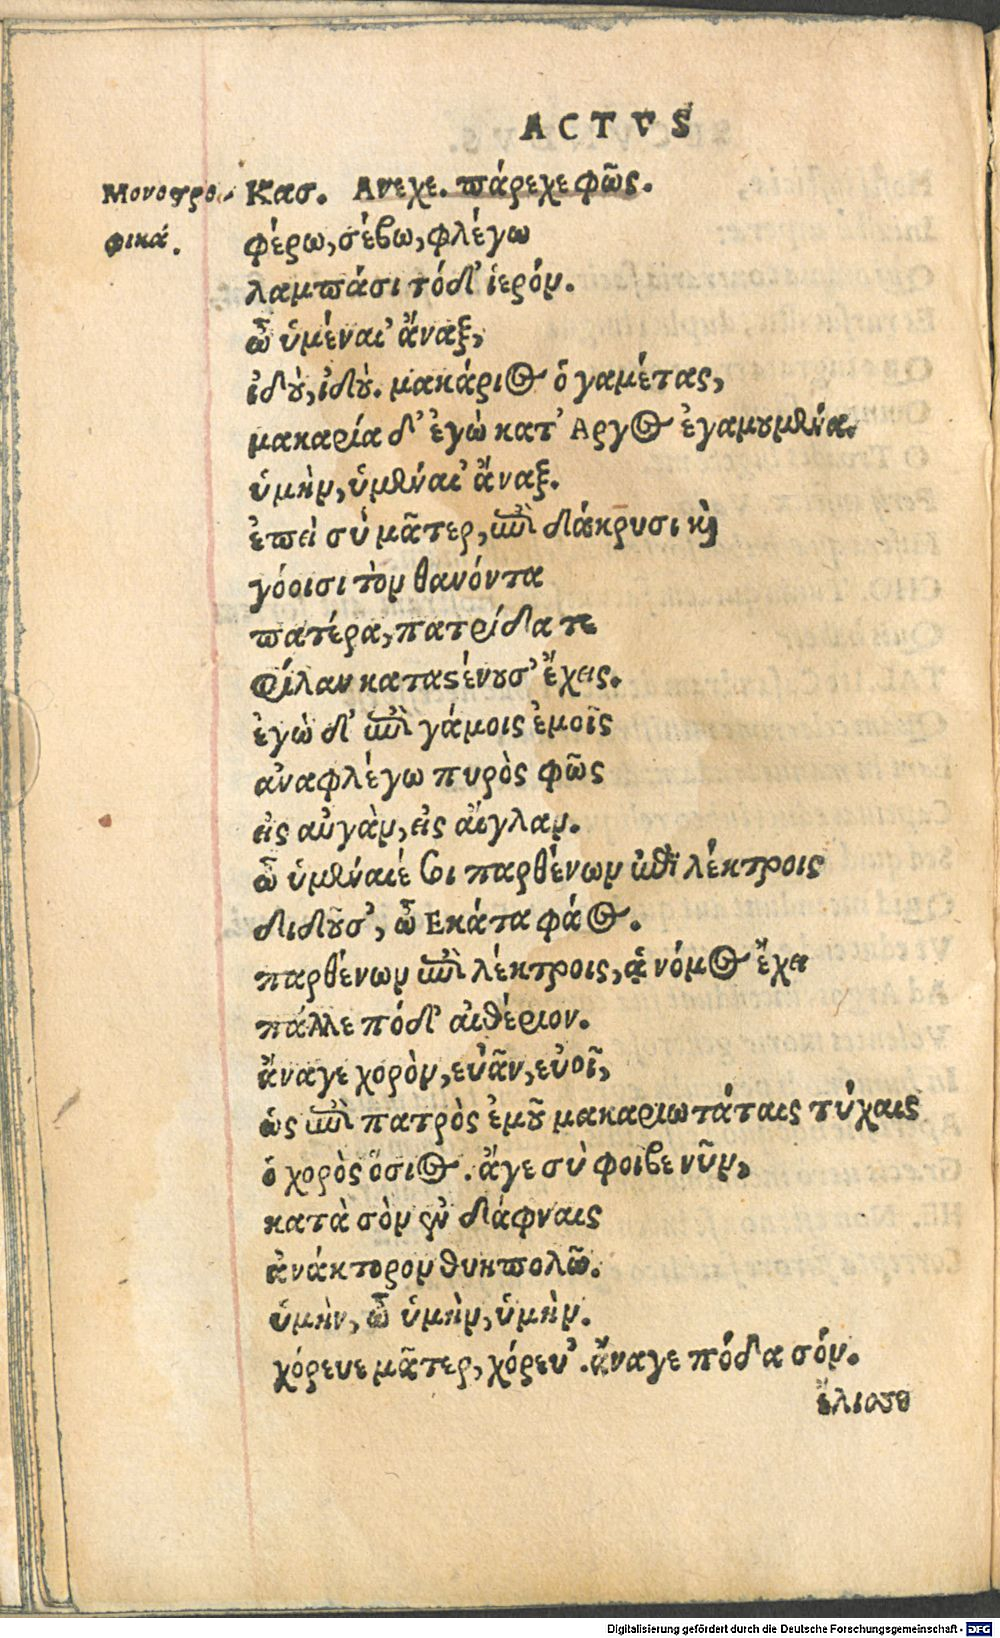 ACTVS
Μονοςρο-
φικά.
Κασ. Ανεχε. πάρεχε φῶς.
φέρω, σέβω, φλέγω
λαμπάσι τόδ' ἱερόν.
ὦ ὑμέναι' ἄναξ,
ἰδοὺ, ἰδοὺ. μακάριος ὁ γαμέτας,
μακαρία δ' ἐγὼ κατ' Αργος ἐγαμουμένα.
ὑμὴν, ὑμέναι' ἄναξ.
ἐπεὶ σὺ μᾶτερ, ἐπὶ δάκρυσι καὶ
γόοισι τὸν θανόντα
πατέρα, πατρίδα τε
φίλαν καταςένουσ' ἔχεις.
ἐγὼ δ' ἐπὶ γάμοις ἐμοῖς
ἀναφλέγω πυρὸς φῶς
εἰς αὐγὰν, εἰς αἴγλαν.
ὦ ὑμέναιέ σοι παρθένων ἐπὶ λέκτροις
διδοῦσ', ὦ Εκάτα φάος.
παρθένων ἐπὶ λέκτροις, ᾇ νόμος ἔχει
πάλλε πόδ' αἰθέριον.
ἄναγε χορὸν, εὐᾶν, εὐοῖ,
ὡς ἐπὶ πατρὸς ἐμοῦ μακαριωτάταις τύχαις
ὁ χορὸς ὅσιος. ἄγε σὺ φοιβε νῦν,
κατὰ σὸν ἐν δάφναις
ἀνάκτορον θυηπολῶ.
ὑμὴν, ὦ ὑμὴν, ὑμὴν.
χόρευε μᾶτερ, χόρευ'. ἄναγε πόδα σόν.
ἕλισσε
Digitalisierung gefördert durch die Deutsche Forschungsgemeinschaft - DFG